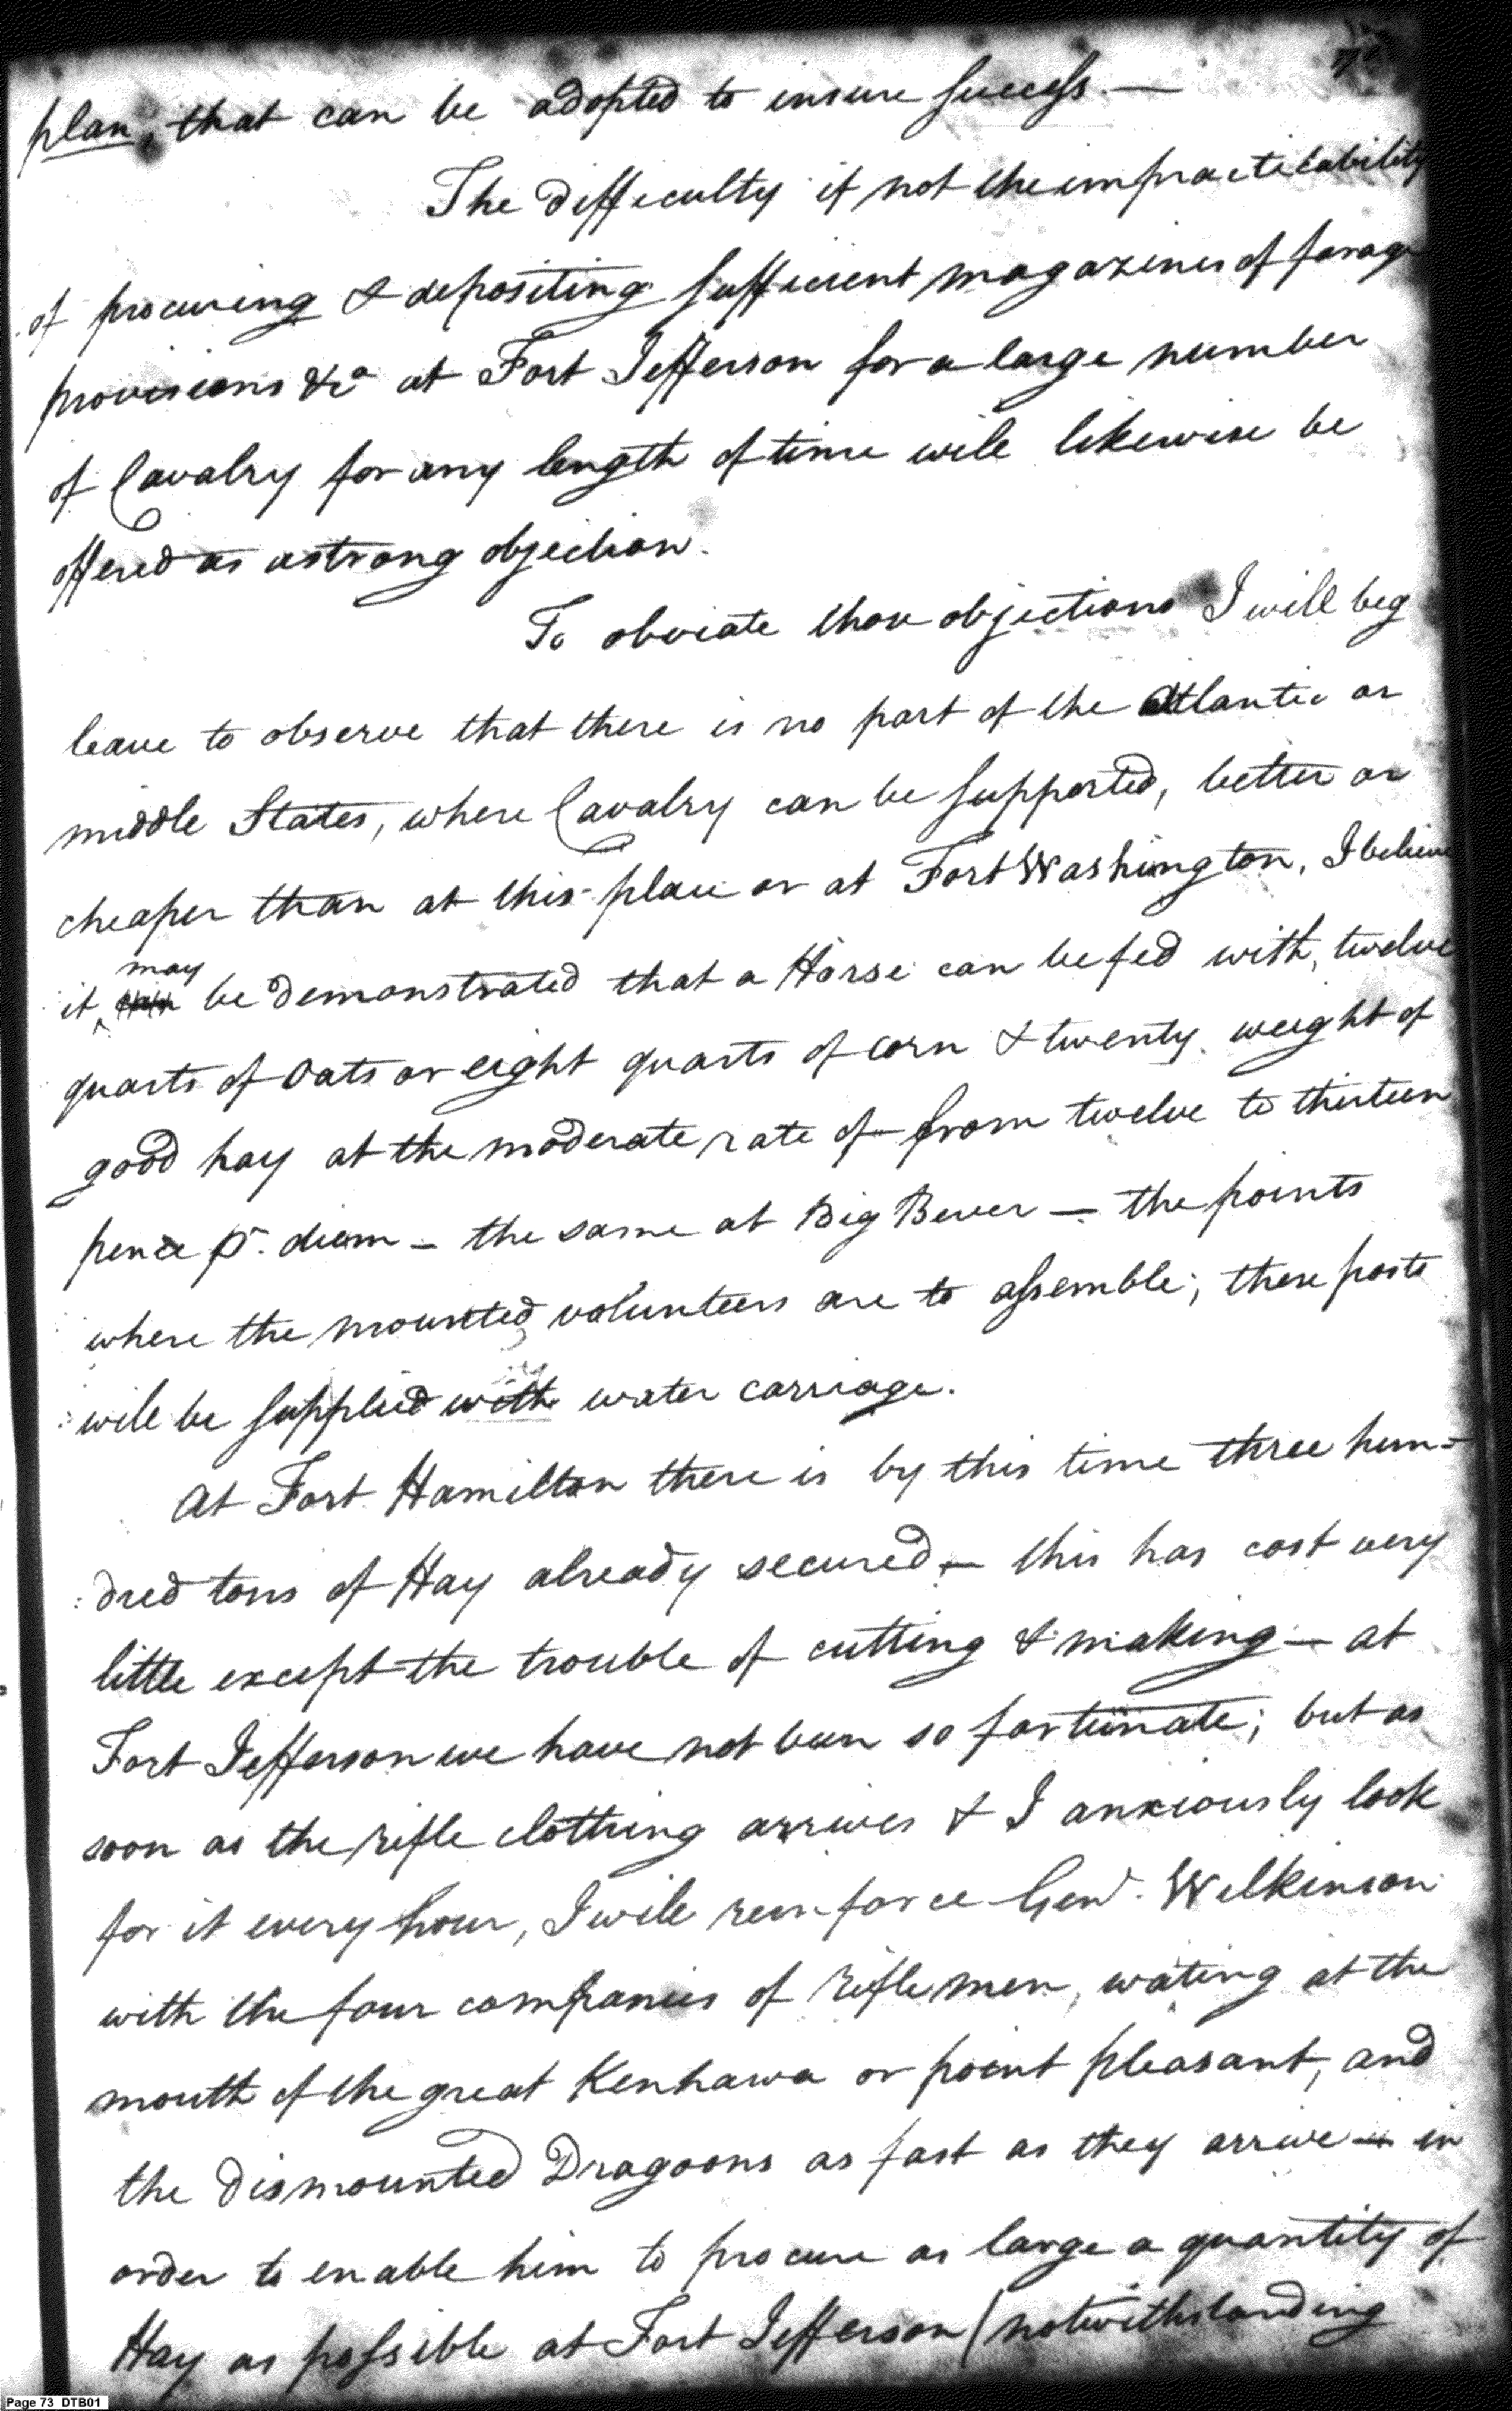 plan, that can be adopted to insure success. —
The difficulty if not the impracticability
of procuring & depositing sufficient magazines of forage
provisions &ca at Fort Jefferson for a large number
of Cavalry for any length of time will likewise be
offered as a strong objection.
To obviate those objections I will beg
leave to observe that there is no part of the Atlantic or
middle States, where Cavalry can be supported, better or
cheaper than at this place or at Fort Washington, I believe
may
it ^ can be demonstrated that a Horse can be fed with, twelve
quarts of Oats or eight quarts of corn & twenty weight of
good hay at the moderate rate of from twelve to thirteen
pence pr. diem – the same at Big Bever — the points
where the mounted volunteers are to assemble; these posts
will be supplied with water carriage.
At Fort Hamilton there is by this time three hun=
:dred tons of Hay already secured — this has cost very
little except the trouble of cutting & making — at
Fort Jefferson we have not been so fortunate; but as
soon as the rifle clothing arrives & I anxiously look
for it every hour, I will reinforce Genl. Wilkinson
with the four companies of rifle men, wating at the
mouth of the great Kenhawa or point pleasant, and
the dismounted Dragoons as fast as they arrive — in
order to enable him to procure as large a quantity of
Hay as possible at Fort Jefferson (notwithstanding
Page 73 DTB01